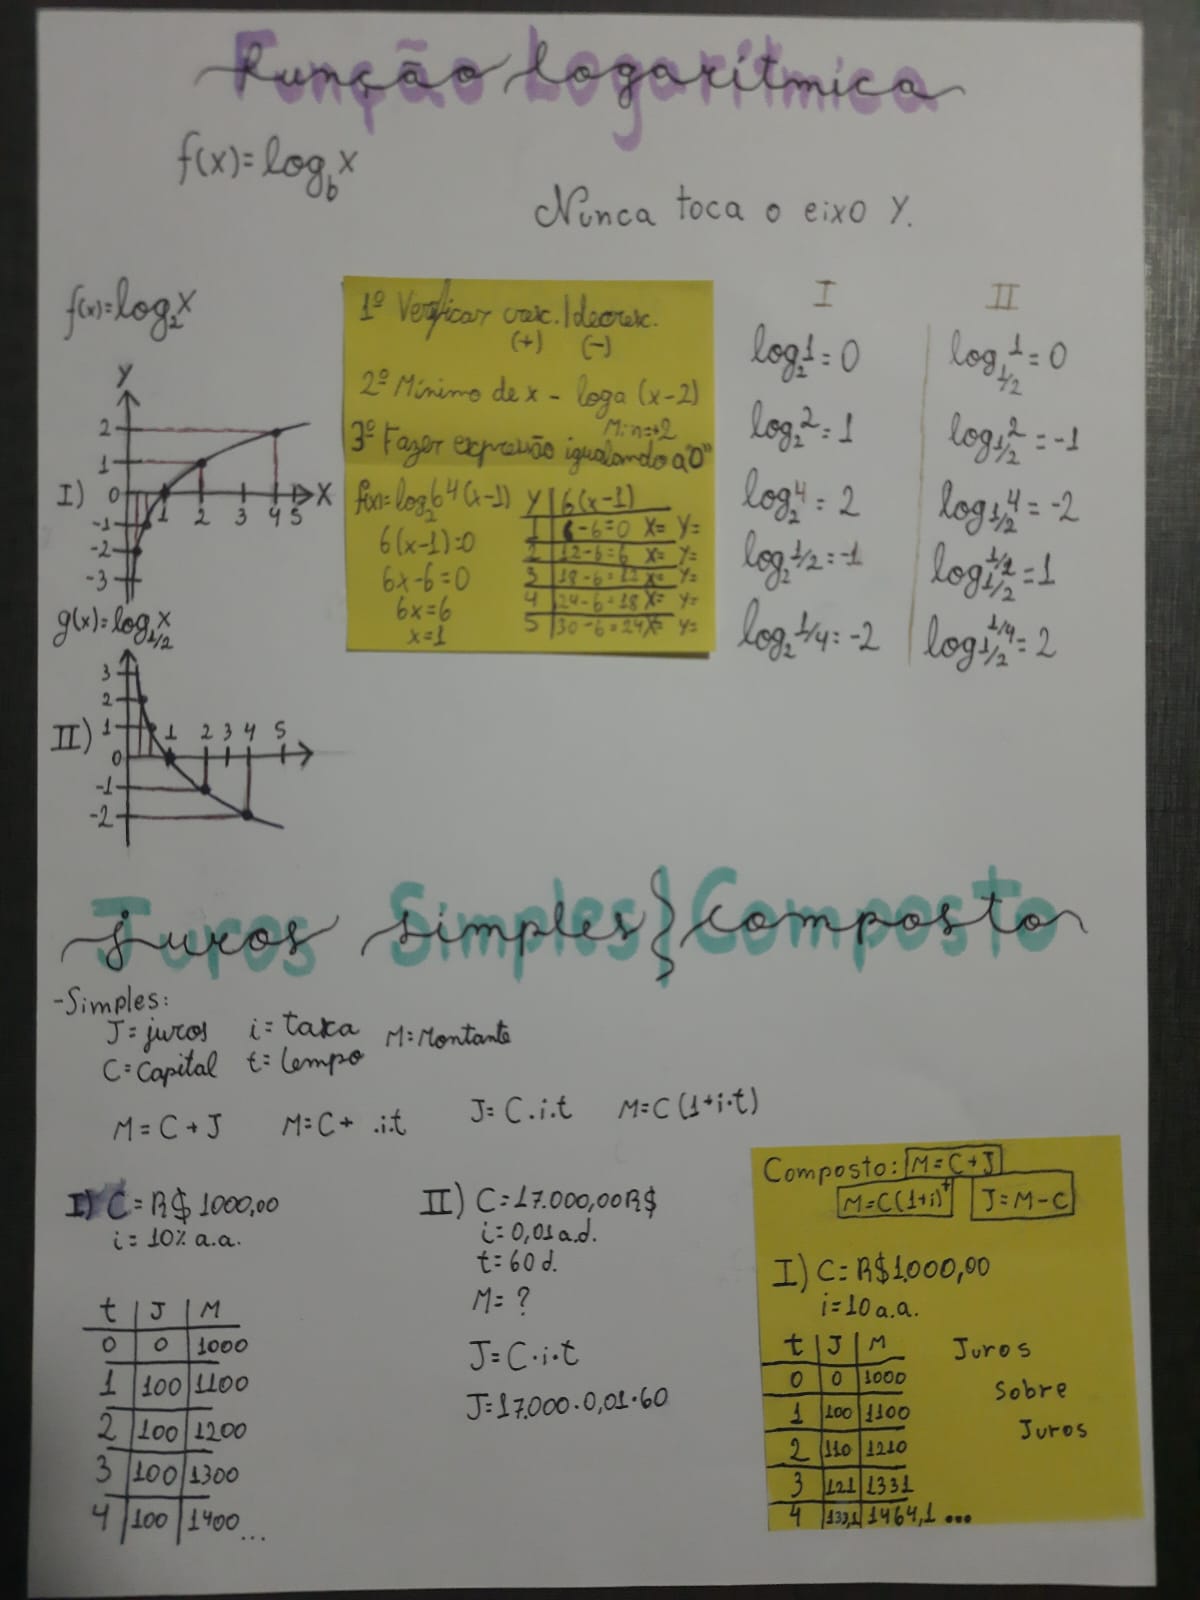 Função Logarítmica
f(x)=log_b x
Nunca toca o eixo Y.
f(x)=log_2 x
Y
2
1
I) 0 1 2 3 4 5 X
-1
-2
-3
g(x)=log_1/2 x
3
2
II) 1 1 2 3 4 5
0
-1
-2
1º Verificar cresc./decresc.
(+) (-)
2º Mínimo de x - loga (x-2)
3º Fazer expressão igualando a "0"
6(x-1)=0
6x-6=0
6x=6
x=1
Y | 6(x-1)
1 | 6-6=0 X= Y=
2 | 12-6=6 X= Y=
3 | 18-6=12 X= Y=
4 | 24-6=18 X= Y=
5 | 30-6=24 X= Y=
I
log_2 1 = 0
log_2 2 = 1
log_2 4 = 2
log_2 1/2 = -1
log_2 1/4 = -2
II
log_1/2 1 = 0
log_1/2 2 = -1
log_1/2 4 = -2
log_1/2 1/2 = 1
log_1/2 1/4 = 2
Juros Simples | Composto
-Simples:
J= juros i= taxa M= Montante
C= Capital t= tempo
M= C+J M= C+ .i.t J= C.i.t M=C(1+i.t)
I) C= R$ 1000,00
i= 10% a.a.
t | J | M
0 | 0 | 1000
1 | 100 | 1100
2 | 100 | 1200
3 | 100 | 1300
4 | 100 | 1400...
II) C=17.000,00R$
i=0,01 a.d.
t=60 d.
M= ?
J= C.i.t
J=17.000.0,01.60
Composto: M=C+J
M=C(1+i)^t J=M-C
I) C= R$1000,00
i=10 a.a.
t | J | M
0 | 0 | 1000
1 | 100 | 1100
2 | 110 | 1210
3 | 121 | 1331
4 | 133,1 | 1464,1 ...
Juros
Sobre
Juros